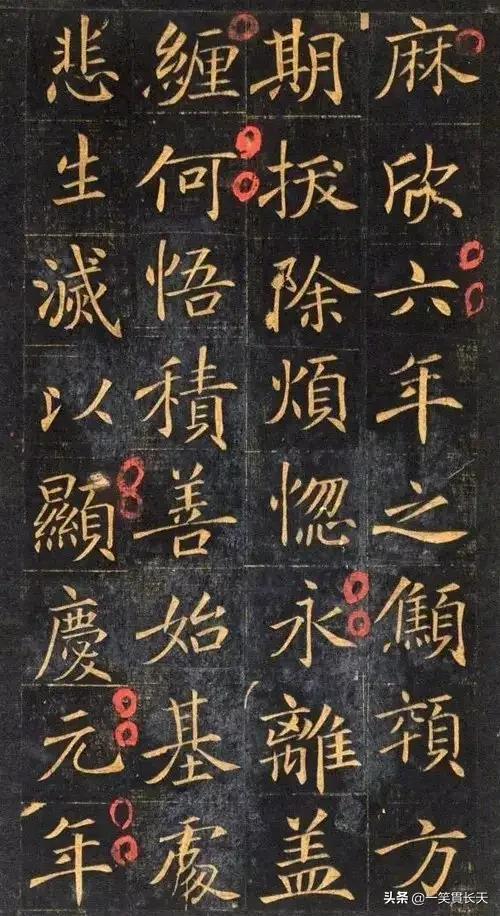 麻欣六年之顦顇方
期拔除煩惚永離盖
纏何悟積善始基處
悲生滅以顯慶元年
头条 @一笑貫长天